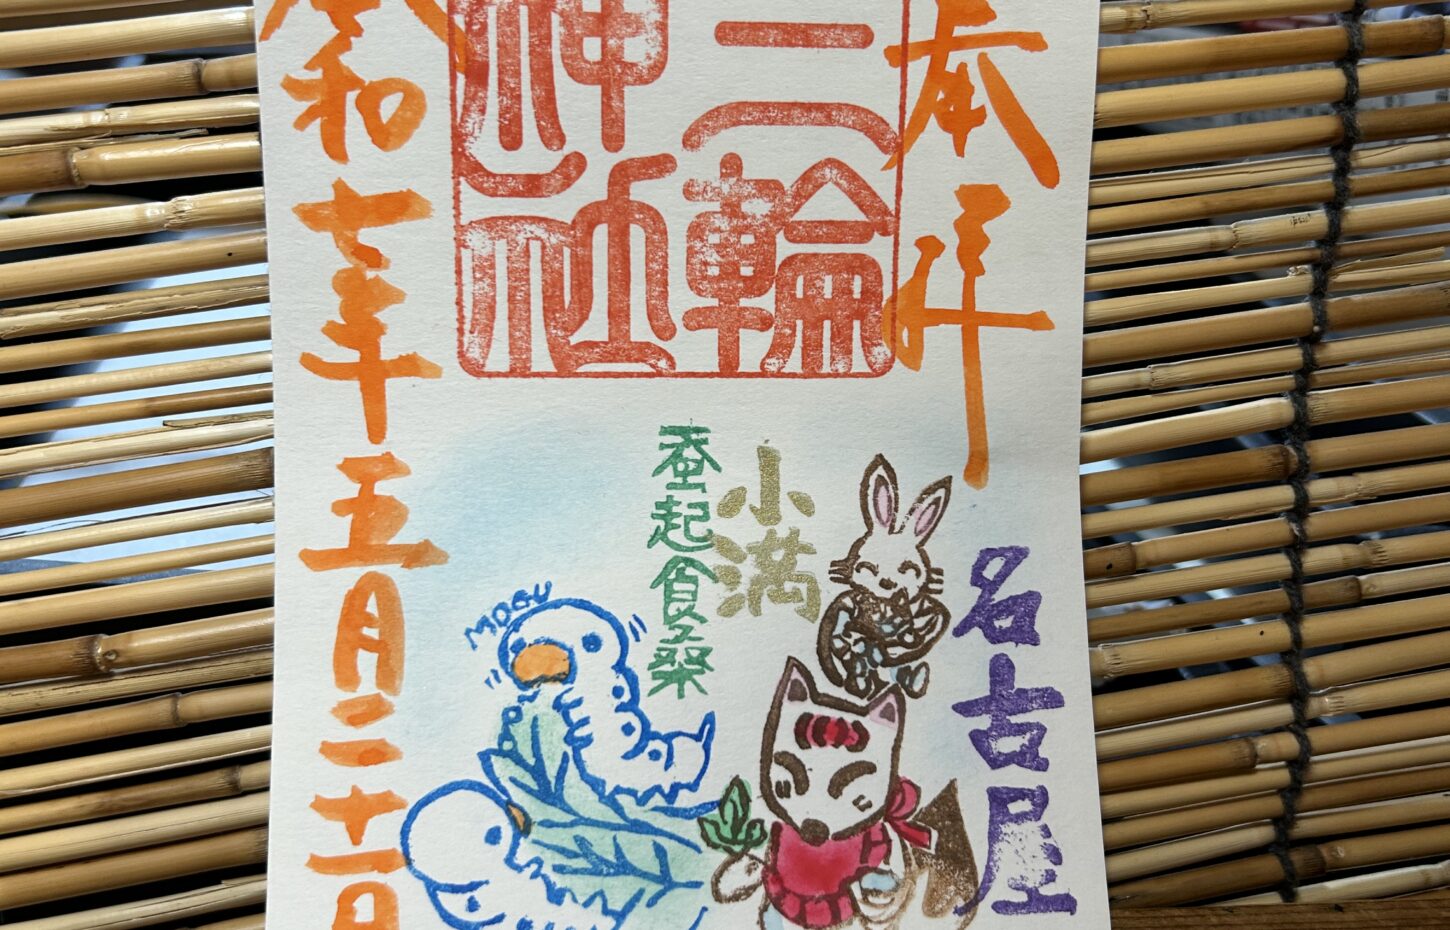 奉拝
三輪
神社
名古屋
小満
蚕起食桑
MOGU
令和七年五月二十一日